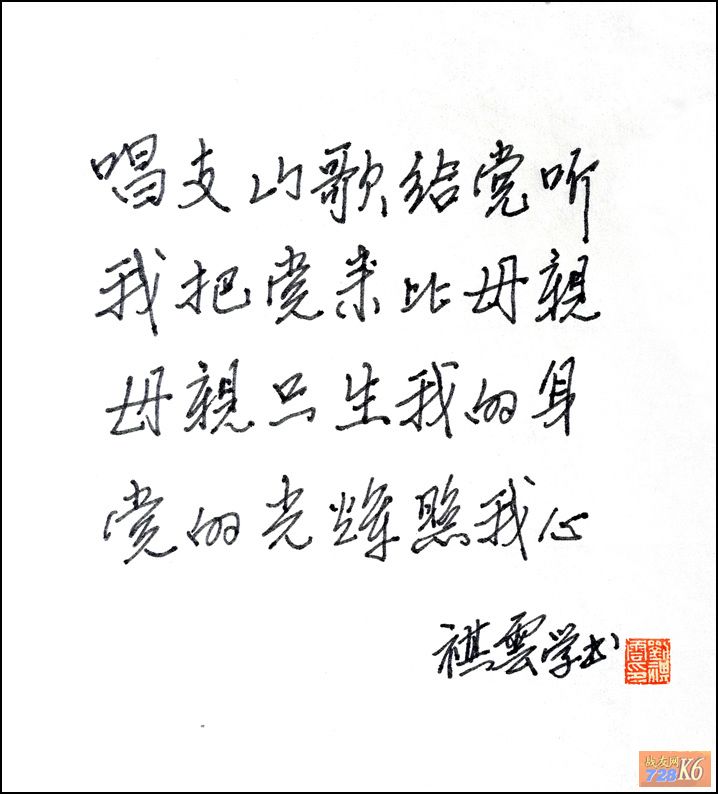 唱支山歌给党听
我把党来比母親
母親只生我的身
党的光辉照我心
祺雲学书
劉祺雲印
战友网
728K6